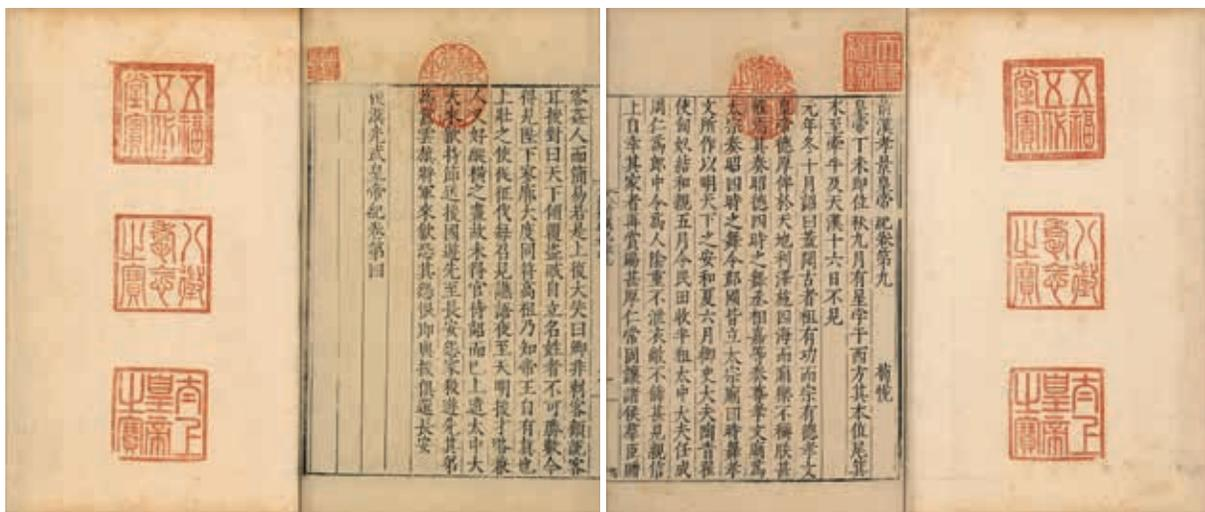 五福五代堂寶
八徵耄念之寶
太上皇帝之寶
前漢孝景皇帝紀卷第九 荀悅
皇帝丁未即位秋九月有星孛于西方其本位尾箕
末至帝牛及天漢十六日不見
元年冬十月詔曰蓋聞古者祖有功而宗有德孝文
皇帝德厚侔於天地利澤施四海而廟樂不稱朕甚
懼焉其奏昭德四時之舞丞相嘉等奏尊孝文廟為
太宗奏昭四時之舞令郡國皆立太宗廟四時舞孝
文所作以明天下之安和夏六月御史大夫陶青翟
使匈奴結和親五月令民田收半租太中大夫任成
周仁為郎中令為人陰重不泄衣敝不飾甚見親信
上自幸其家者再賞賜甚厚仁常固讓諸侯羣臣贈
客姦人而簡易若是上復大笑曰卿非刺客顧說客
耳援對曰天下傾覆盜賊自立名姓者不可勝數今
得見陛下寥廓大度同符高祖乃知帝王自有真也
上壯之使從征伐每召見讌語夜至天明援才略兼
人又好縱橫之畫故未得官待詔而已上遣太中大
夫來歙持節送援國遊先至長安怨家殺遊先其弟
為囂雲旗將軍來歙恐其怨恨即與援俱還長安
後漢光武皇帝紀卷第四
五福五代堂寶
八徵耄念之寶
太上皇帝之寶